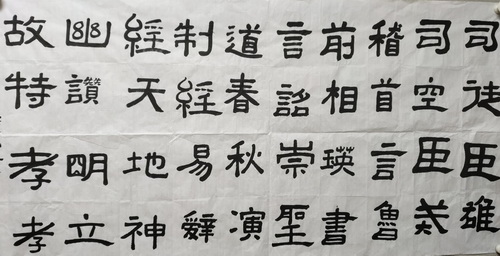 司徒臣雄
司空臣戒
稽首言魯
前相瑛書
言詔崇聖
道春秋演
制經易辭
經天地神
幽讚明立
故特孝孝